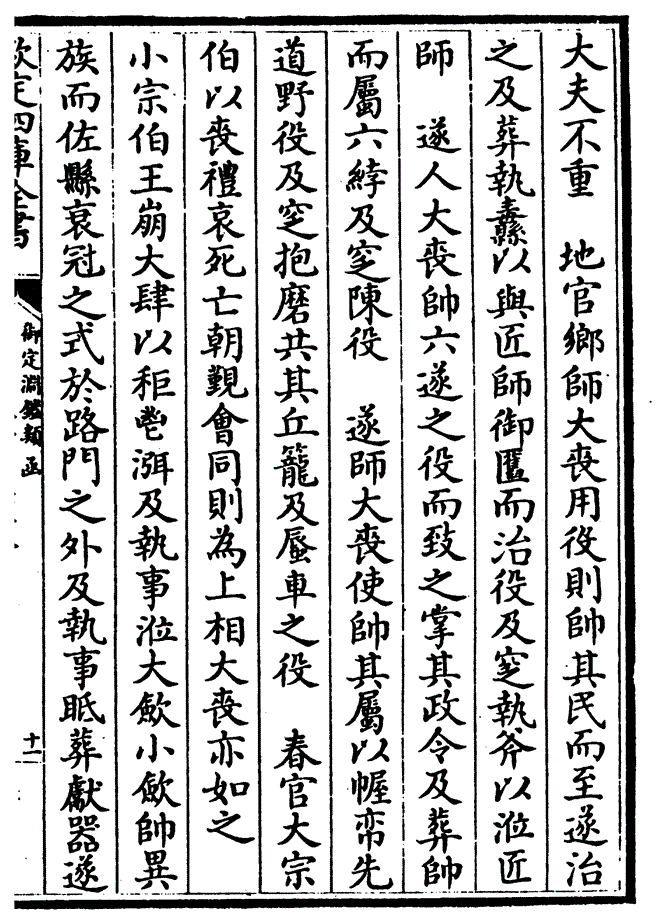 大夫不重　地官鄉師大喪用役則帥其民而至遂治
之及葬執纛以與匠師御匶而治役及窆執斧以涖匠
師　遂人大喪帥六遂之役而致之掌其政令及葬帥
而屬六綍及窆陳役　遂師大喪使帥其屬以幄帟先
道野役及窆抱磨共其丘籠及蜃車之役　春官大宗
伯以喪禮哀死亡朝覲會同則為上相大喪亦如之
小宗伯王崩大肆以秬鬯渳及執事涖大斂小斂帥異
族而佐縣衰冠之式於路門之外及執事眡葬獻器遂
欽定四庫全書
御定淵鑑類函
十一